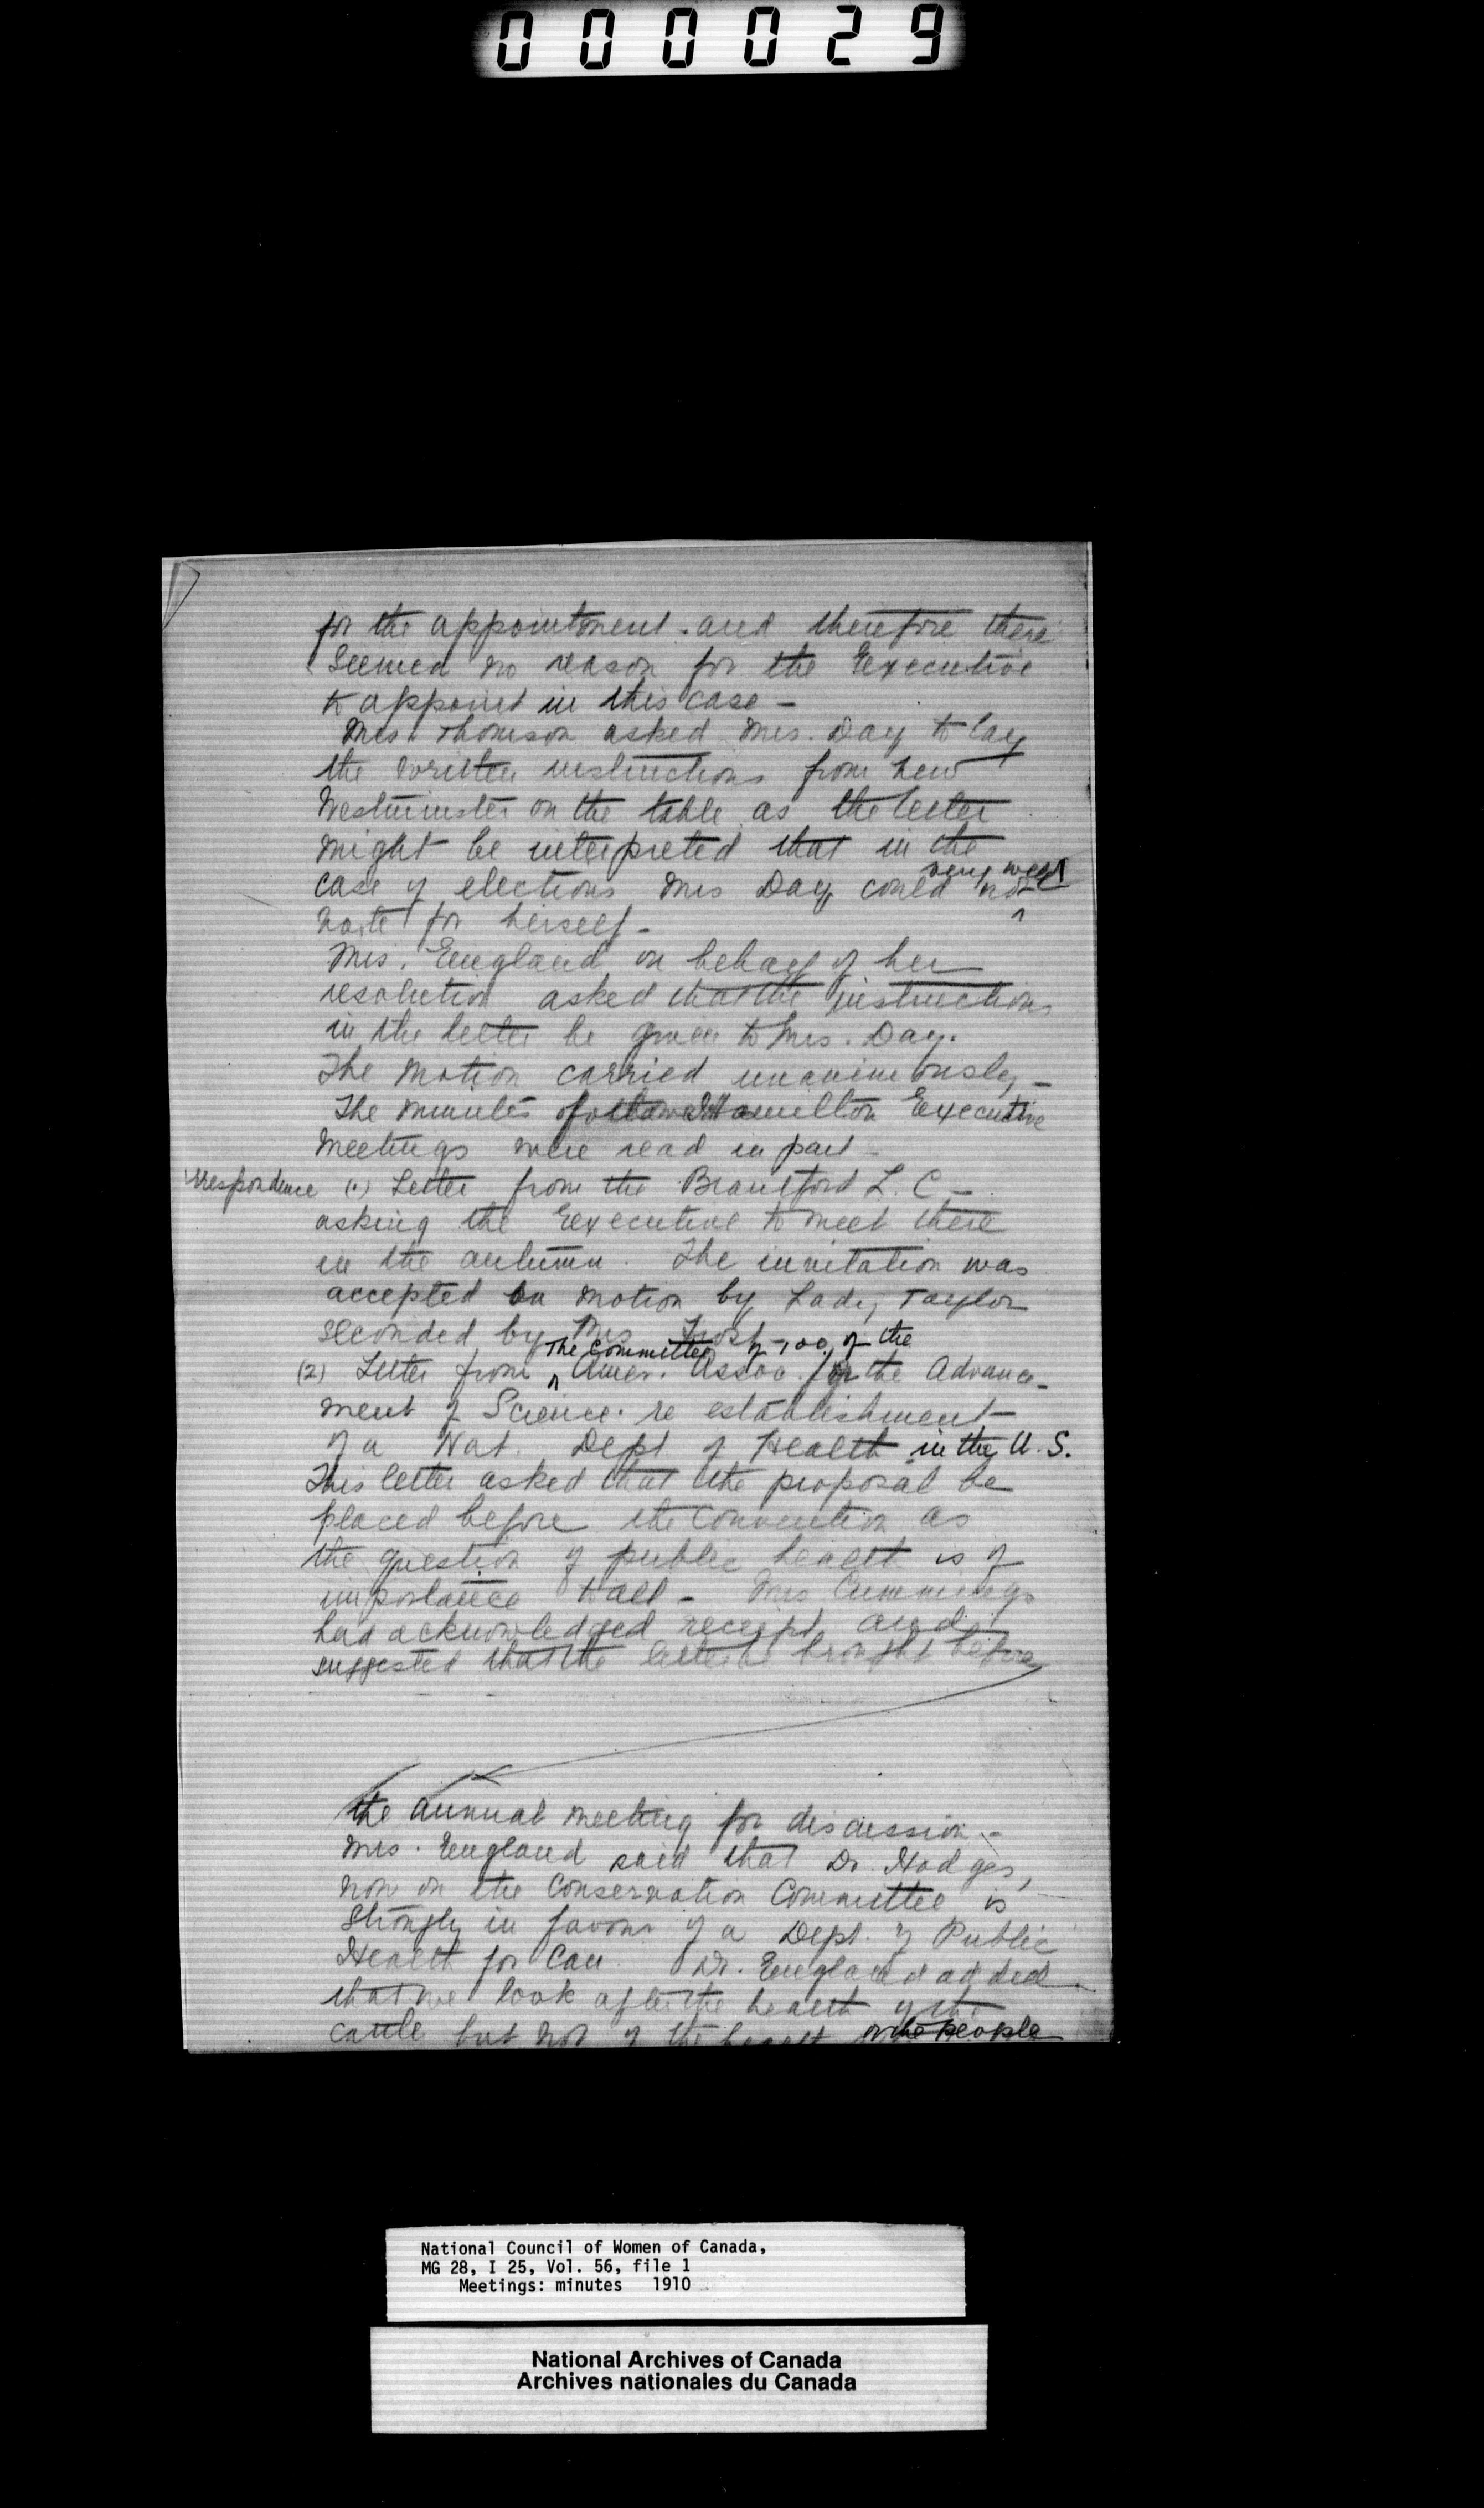 000029
for the appointment - and therefore there
seemed no reason for the Executive
to appoint in this case -
Mrs. Thomson asked Mrs. Day to lay
the written instructions from New
Westminster on the table as the letter
might be interpreted that in the
very well
case of elections Mrs Day could not
vote for herself -
Mrs. England on behalf of her
resolution asked that the instructions
in the letter be given to Mrs. Day.
The motion carried unanimously -
The minutes of Hamilton Executive
meetings were read in part -
rrespondence (1) Letter from the Brantford L. C -
asking the Executive to meet there
in the autumn. The invitation was
accepted on motion by Lady Taylor
seconded by Mrs Frost -
The Committee of 100 of the
(2) Letter from ^ Amer. Assoc. for the Advance-
ment of Science. re establishment
of a Nat. Dept of Health in the U.S.
This letter asked that the proposal be
placed before the Convention as
the question of public health is of
importance to all - Mrs Cummings
had acknowledged receipt and
suggested that the letter be brought before
the annual meeting for discussion -
Mrs. England said that Dr. Hodges,
now on the Conservation Committee is
strongly in favour of a Dept. of Public
Health for Can. Dr. England added
that we look after the health of the
cattle but not of the health of the people
National Council of Women of Canada,
MG 28, I 25, Vol. 56, file 1
Meetings: minutes 1910
National Archives of Canada
Archives nationales du Canada